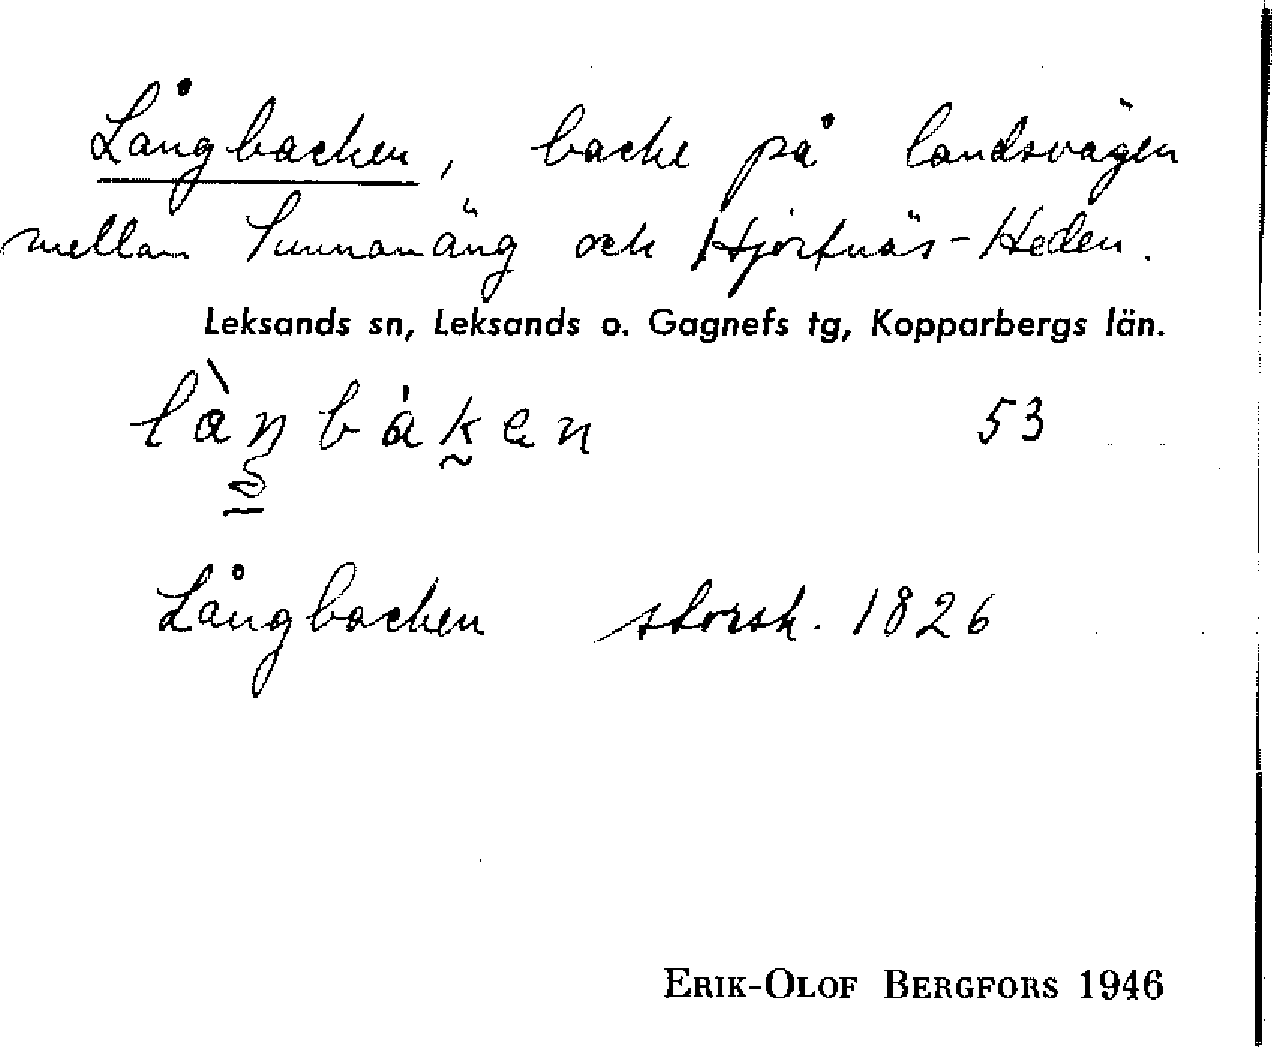 Långbacken, backe på landsvägen
mellan Sunnanäng och Hjortnäs-Heden.
Leksands sn, Leksands o. Gagnefs tg, Kopparbergs län.
53
Långbacken storsk. 1826
ERIK-OLOF BERGFORS 1946